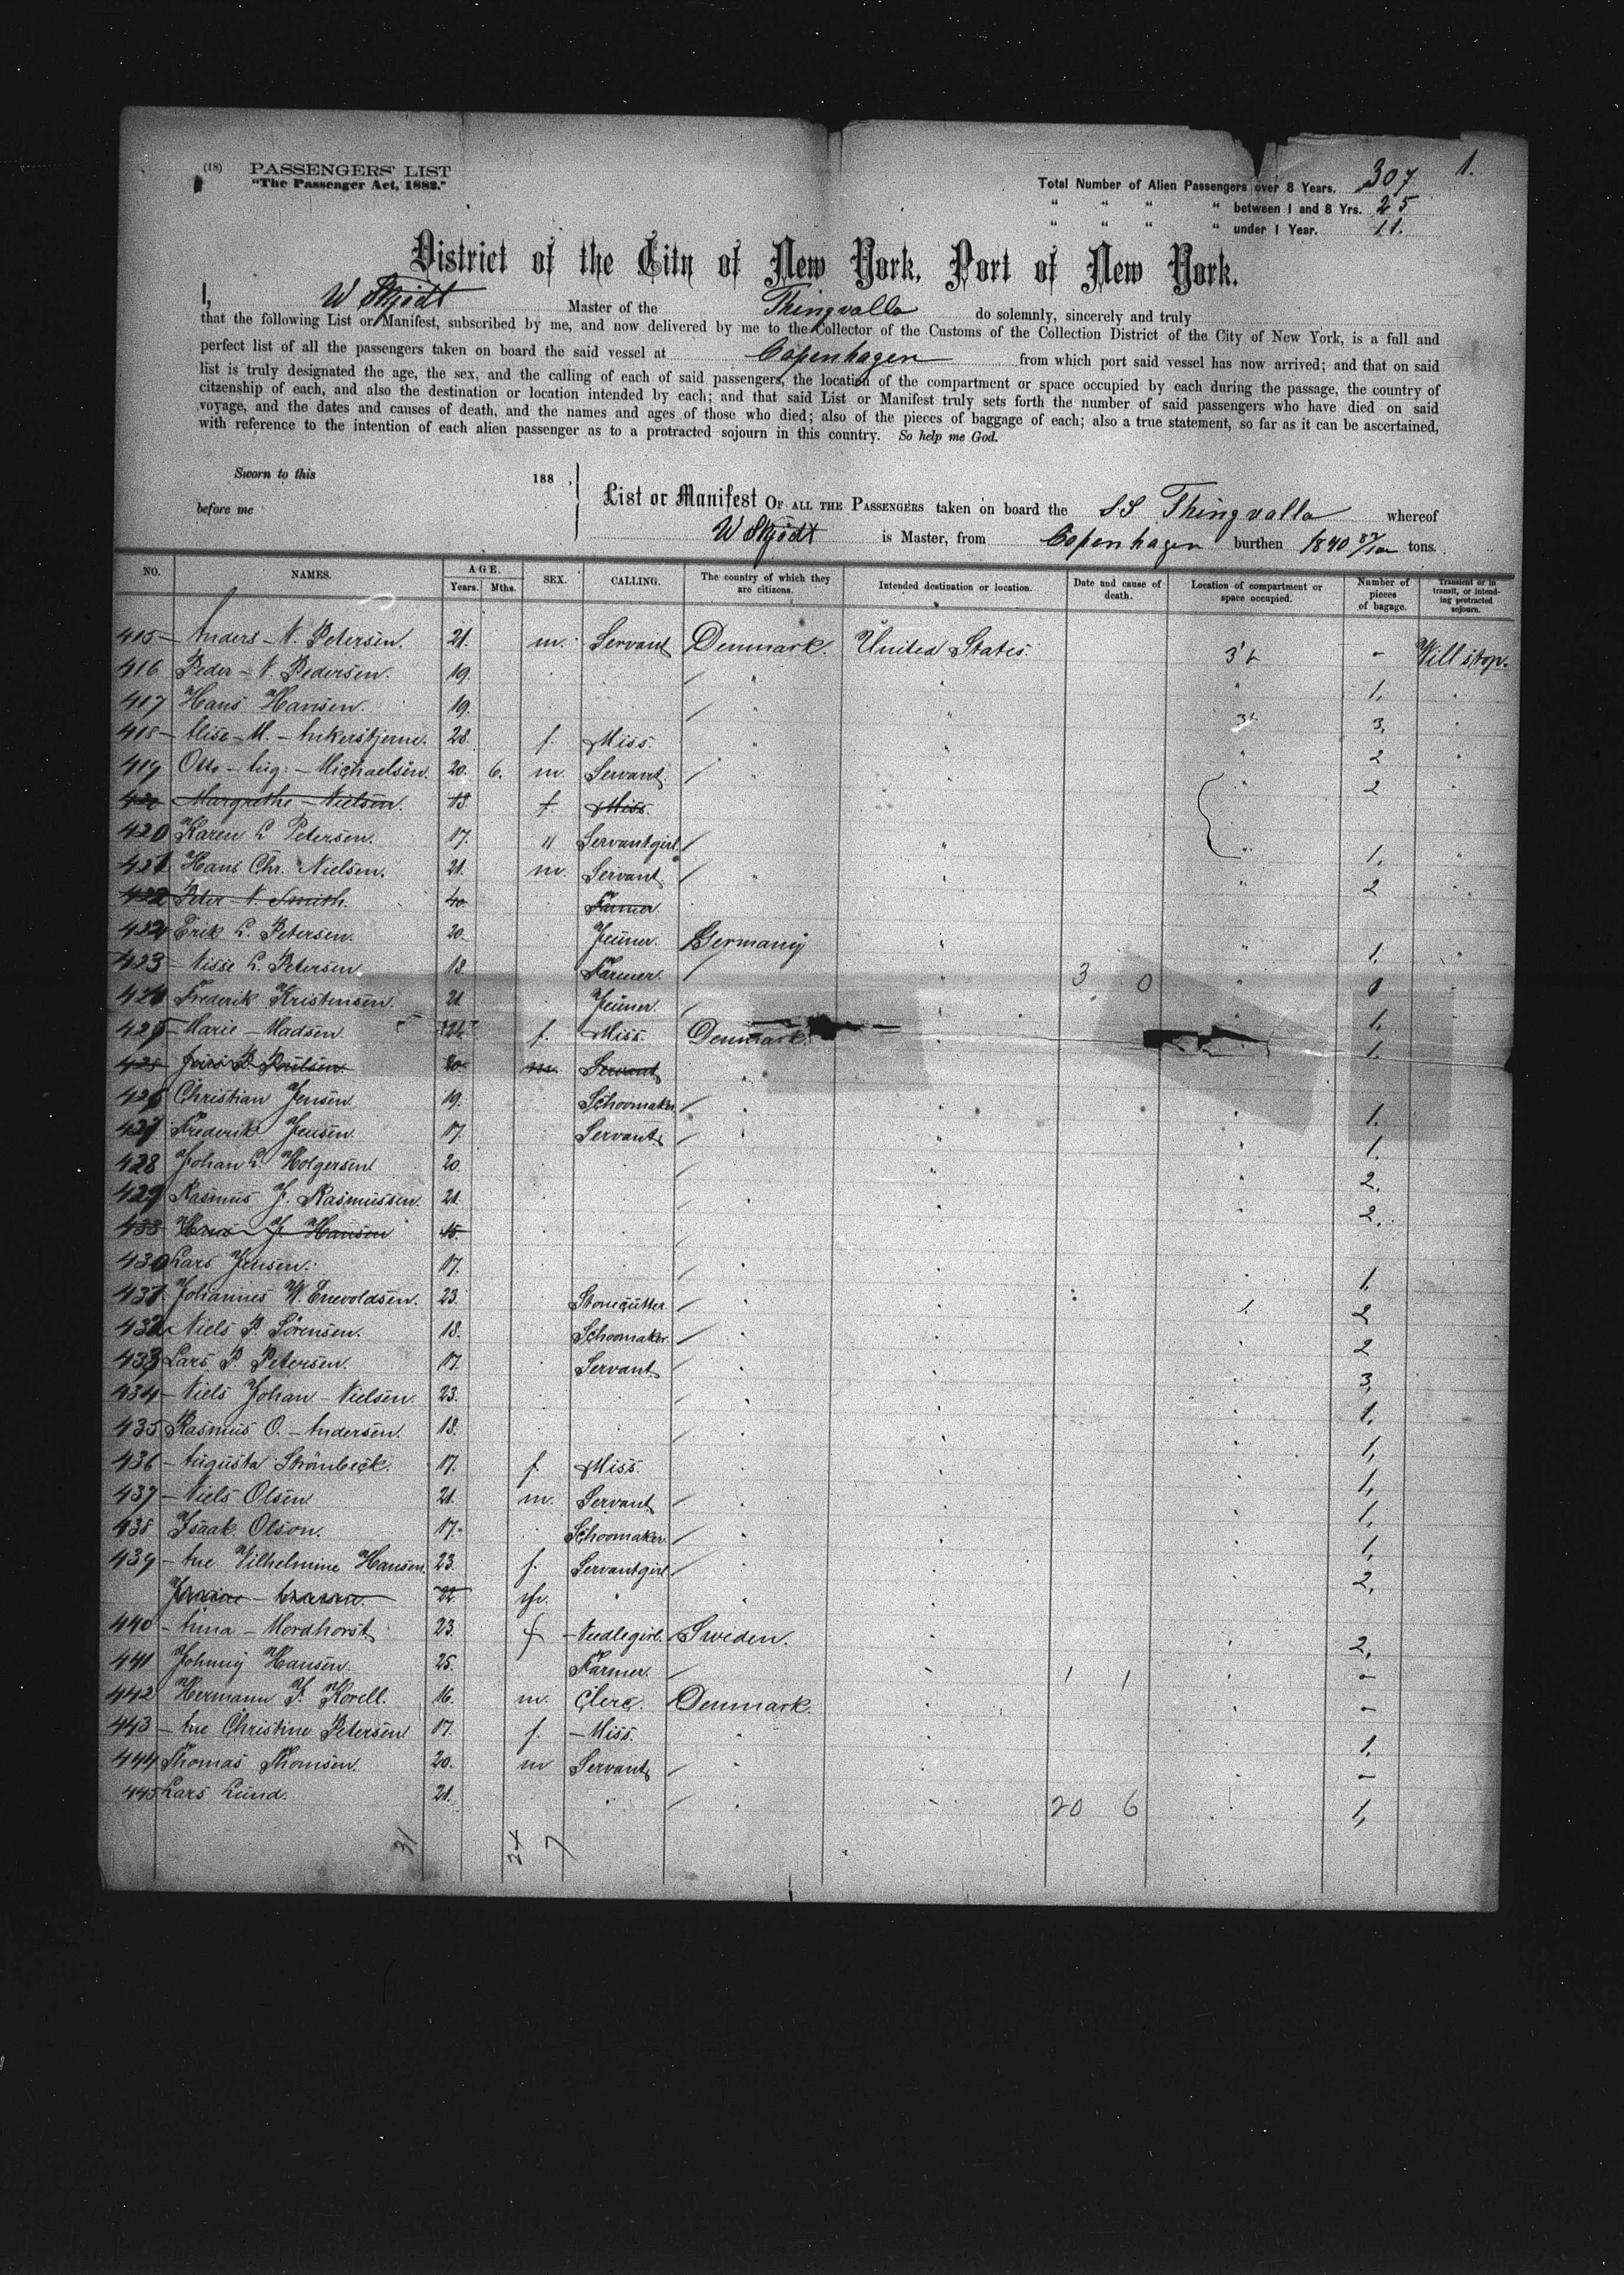 (18) PASSENGERS' LIST
"The Passenger Act, 1882."
1.
Total Number of Alien Passengers over 8 Years. 307
" " " " between 1 and 8 Yrs. 25
" " " " under 1 Year. 11.
District of the City of New York, Port of New York.
I, W Skjödt Master of the Thingvalla do solemnly, sincerely and truly
that the following List or Manifest, subscribed by me, and now delivered by me to the Collector of the Customs of the Collection District of the City of New York, is a full and
perfect list of all the passengers taken on board the said vessel at Copenhagen from which port said vessel has now arrived; and that on said
list is truly designated the age, the sex, and the calling of each of said passengers, the location of the compartment or space occupied by each during the passage, the country of
citzenship of each, and also the destination or location intended by each; and that said List or Manifest truly sets forth the number of said passengers who have died on said
voyage, and the dates and causes of death, and the names and ages of those who died; also of the pieces of baggage of each; also a true statement, so far as it can be ascertained,
with reference to the intention of each alien passenger as to a protracted sojourn in this country. So help me God.
Sworn to this 188 ,
before me
List or Manifest OF ALL THE PASSENGERS taken on board the S.S Thingvalla whereof
W Skjödt is Master, from Copenhagen burthen 1840 87/100 tons.
NO. NAMES. AGE. Years. Mths. SEX. CALLING. The country of which they are citizens. Intended destination or location. Date and cause of death. Location of compartment or space occupied. Number of pieces of bagage. Transient or in transit, or intending protracted sojourn.
415 Anders N. Petersen. 21. m. Servant Denmark. United States. - Will stop.
416 Peder N. Pedersen. 19. 1,
417 Hans Hansen. 19. 3,
418 Elise M. Ankerstjerne. 28. f. Miss. 2
419 Otto Aug: Michaelsen. 20. 6. m. Servant 2
420 Margrethe Nielsen. 18. f. Miss.
420 Karen L Petersen. 17. " Servantgirl. 1,
421 Hans Chr. Nielsen. 21. m. Servant 2
422 Peter N. Smith. 40. Farmer.
422 Erik L. Petersen. 20. Germany 1,
423 Nisse L. Petersen 18. Farmer. 3 0 1
424 Frederik Kristensen. 21. 1,
425 Marie Madsen f. Miss. Denmark. 1.
20 m. Servant
426 Christian Jensen 19. Schoomaker 1.
427 Frederik Jensen 17. Servant 1.
428 Johan L. Holgersen 20. 2,
429 Rasmus J. Rasmussen. 21. 2,
433 J. Hansen 15.
430 Lars Jensen. 17. 1,
431 Johannes W. Enevoldsen. 23. Stonecutter. 2
432 Niels P. Sörensen. 18. Schoomaker. 2
433 Lars P. Petersen. 17. Servant 3,
434 Niels Johan Nielsen. 23. 1,
435 Rasmus O. Andersen. 18. 1,
436 Augusta Strönbeck. 17. f. Miss. 1,
437 Niels Olsen 21. m. Servant 1,
438 Isaak Olson. 17. Schoomaker. 1,
439 Ane Vilhelmine Hansen 23. f. Servantgirl 2,
22
440 Anna Mordhorst 23. f Needlegirl. Sweden. 2,
441 Johnny Hansen. 25. Farmer. 1 1 -
442 Hermann J. Korell. 16. m. Clerc. Denmark. -
443 Ane Christine Petersen 17. f. Miss. 1.
444 Thomas Thomsen. 20. m Servant -
445 Lars Lund. 21. 20 6 1,
31 24 7